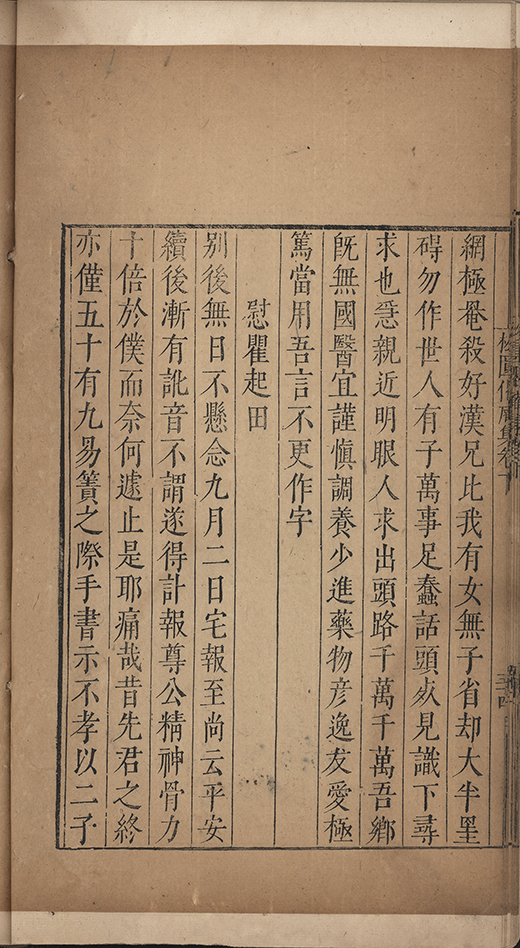 網極罨殺好漢兄比我有女無子省却大半罣
碍勿作世人有子萬事足蠢話頭从見識下尋
求也急親近明眼人求出頭路千萬千萬吾鄉
旣無國醫宜謹慎調養少進藥物彦逸友愛極
篤當用吾言不更作字
慰瞿起田
别後無日不懸念九月二日宅報至尚云平安
續後漸有訛音不謂遂得訃報尊公精神骨力
十倍於僕而奈何遽止是耶痛哉昔先君之終
亦僅五十有九易簀之際手書示不孝以二子